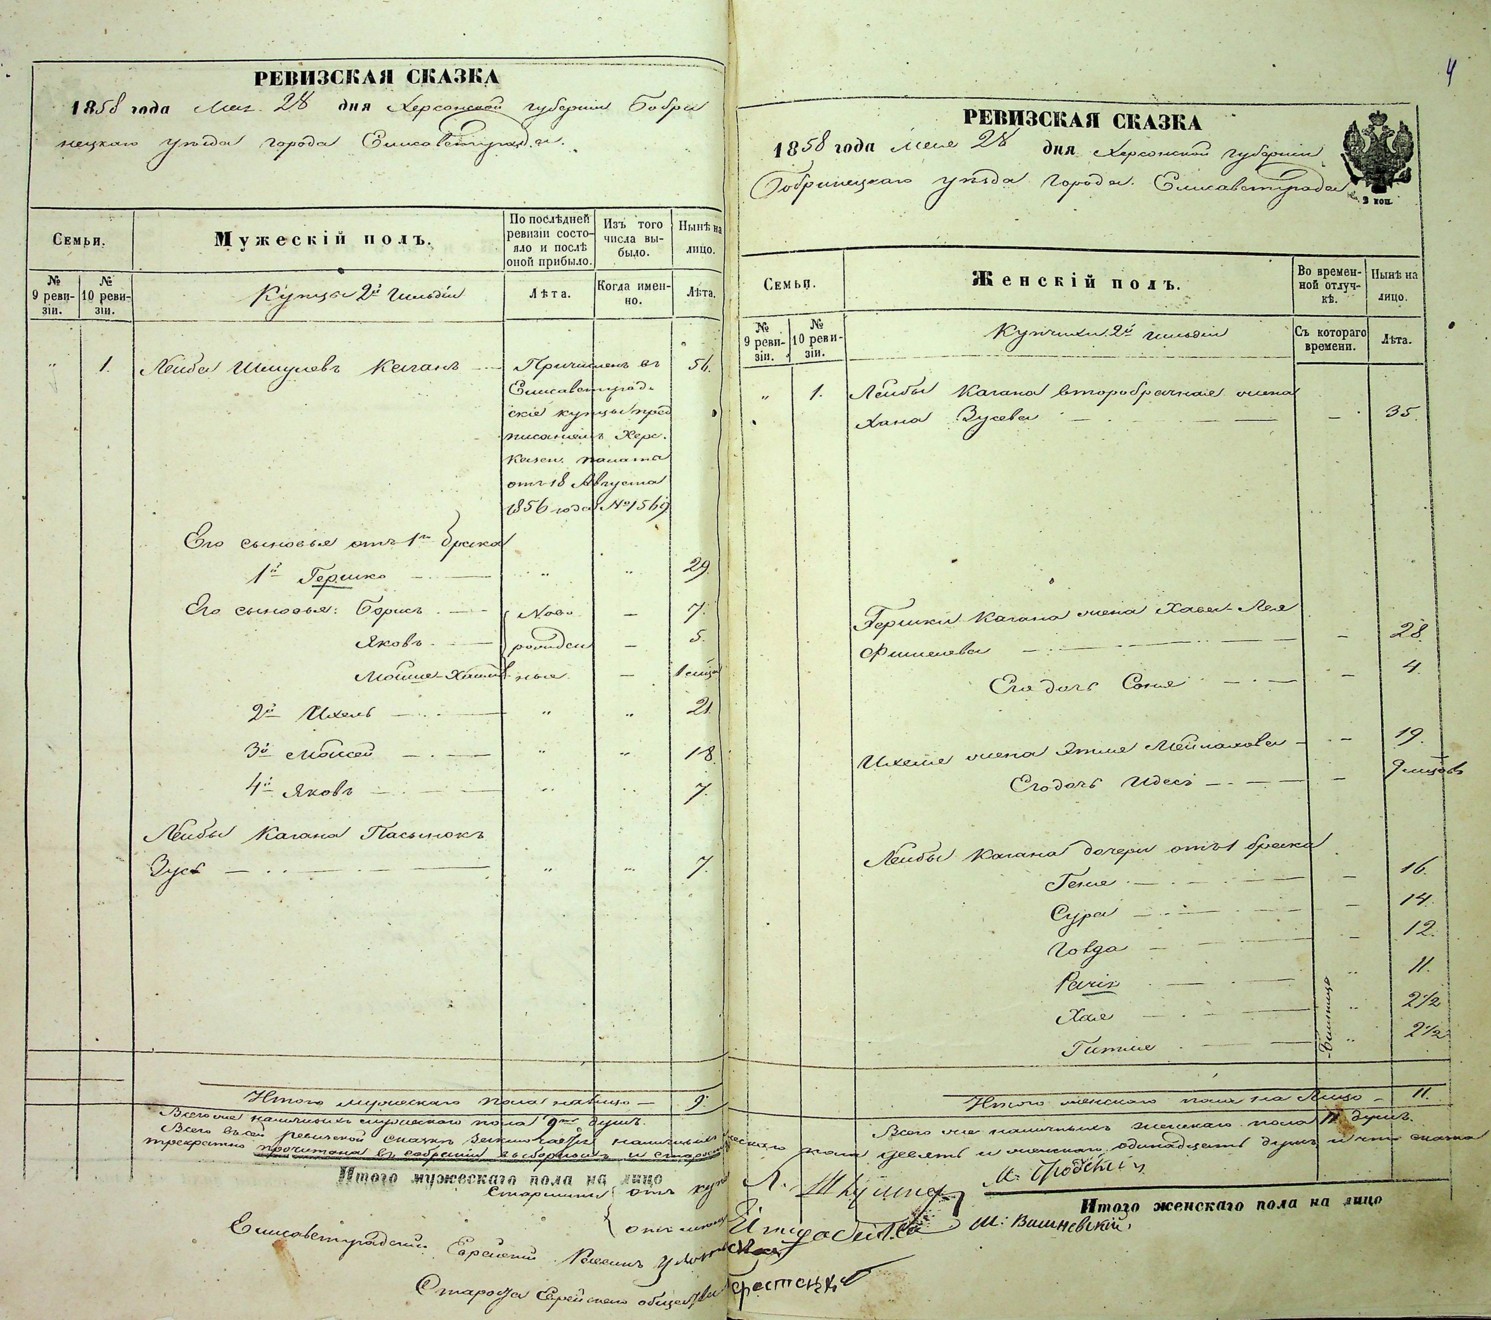 4
РЕВИЗСКАЯ СКАЗКА
1858 года Мая 28 дня Херсонской губернии Бобри
нецкаго уѣзда города Елисаветграда.
Семьи.
Мужескій полъ.
По послѣдней ревизіи состояло и послѣ оной прибыло.
Изъ того числа выбыло.
Нынѣ на лицо.
№ 9 ревизіи.
№ 10 ревизіи.
Купцы 2й гильдіи
Лѣта.
Когда именно.
Лѣта.
" 1. Лейба Шмулевъ Каганъ — Причисленъ въ 56.
Елисаветград-
скіе купцы пред
писаніемъ Херс.
Казен. палаты
отъ 18 Августа
1856 года №1569
Его сыновья отъ 1го брака
1й Гершко — " " 29.
Его сыновья: Борисъ — Ново — 7.
Яковъ — рожден — 5.
Мойше-Хаимъ ные — 1 мѣсяц
2й Ихель — " " 21.
3й Мойсей — " " 18.
4й Яковъ — " " 7.
Лейбы Кагана Пасынокъ
Зусь — " " 7.
Итого мужескаго пола налицо — 9.
Всего же наличныхъ мужескаго пола 9ть душъ.
РЕВИЗСКАЯ СКАЗКА
1858 года Мая 28 дня Херсонской губерніи
Бобринецкаго уѣзда города Елисаветграда
2 коп.
Семьи.
Женскій полъ.
Во временной отлучкѣ.
Нынѣ на лицо.
№ 9 ревизіи.
№ 10 ревизіи.
Купчихи 2й гильдіи
Съ котораго времени.
Лѣта.
" 1. Лейбы Кагана второбрачная жена
Хана Зусева — — 35.
Гершки Кагана жена Хава-Лея
Фишелева — — 28.
Его дочь Соня — — 4.
Ихеля жена Этля Мейлахова — — 19.
Его дочь Идесь — — 9 мѣсяцовъ
Лейбы Кагана дочери отъ 1 брака
Геня — — 16.
Сура — — 14.
Говда — — 12.
Рагик — " 11.
Хая — " 2 1/2
Гитля — " 2 1/2
Близнецы
Итого женскаго пола на Лицо — 11.
Всего же наличныхъ женскаго пола 11 душъ.
Всего въ сей ревизской сказкѣ заключается наличныхъ мужескаго пола девять и женскаго одинадцать душъ и что сказка
трекратно прочитана въ собраніи выборныхъ и старо
Итого мужескаго пола на лицо
Итого женскаго пола на лицо
Старшины отъ куп Л. Шкулник М. Гродскій
отъ мѣщ М: Вишневскій.
Елисаветградскій Еврейскій Равинъ
Староста Еврейскаго общества Берестецкій